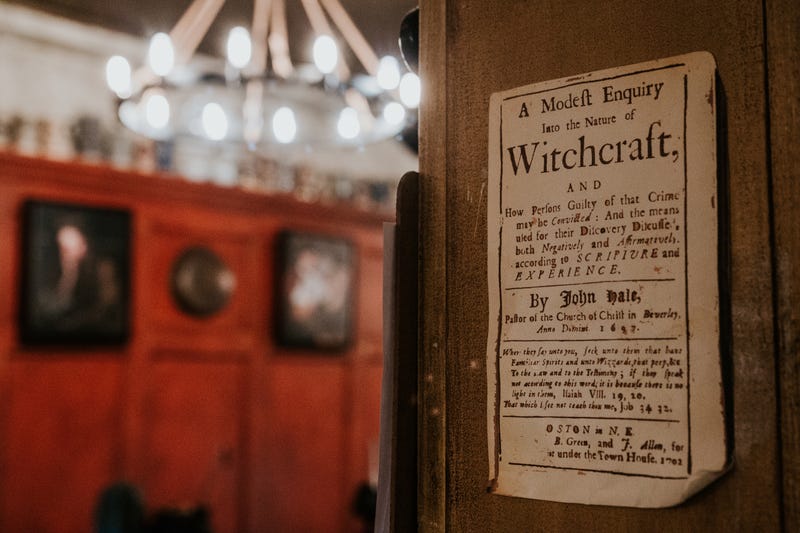 A Modeſt Enquiry
Into the Nature of
Witchcraft,
AND
How Perſons Guilty of that Crime
may be Convicted: And the means
uſed for their Diſcovery Diſcuſſed,
both Negatively and Affirmatively,
according to SCRIPTURE and
EXPERIENCE.
By John Hale,
Paſtor of the Church of Chriſt in Beverley,
Anno Domini 1697.
When they ſay unto you, ſeek unto them that have
Familiar Spirits and unto Wizzards, that peep, &c
To the Law and to the Teſtimony; if they ſpeak
not according to this word, it is becauſe there is no
light in them, Iſaiah VIII. 19, 20.
That which I ſee not teach thou me, Job 34 32.
OSTON in N. E.
B. Green, and J. Allen, for
under the Town Houſe. 1702